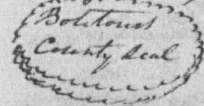 Botetourt
County Seal